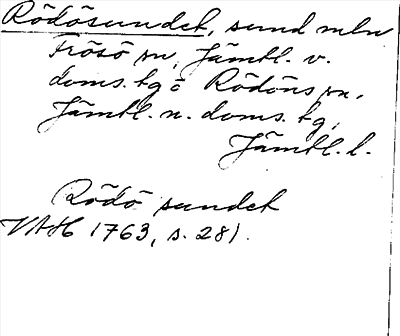 Rödösundet, sund mln
Frösö sn, Jämtl. v.
doms. tg o Rödöns sn,
Jämtl. n. doms. tg,
Jämtl. l.
Rödö sundet
VAH 1763, s. 281.